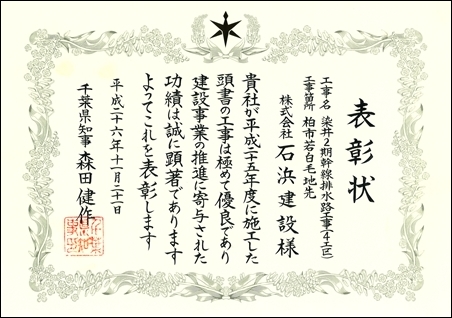 表彰状
工事名 染井2期幹線排水路工事(4工区)
工事箇所 柏市若白毛地先
株式会社 石浜建設様
貴社が平成二十五年度に施工した
頭書の工事は極めて優良であり
建設事業の推進に寄与された
功績は誠に顕著であります
よってこれを表彰します
平成二十六年十一月二十一日
千葉県知事 森田健作